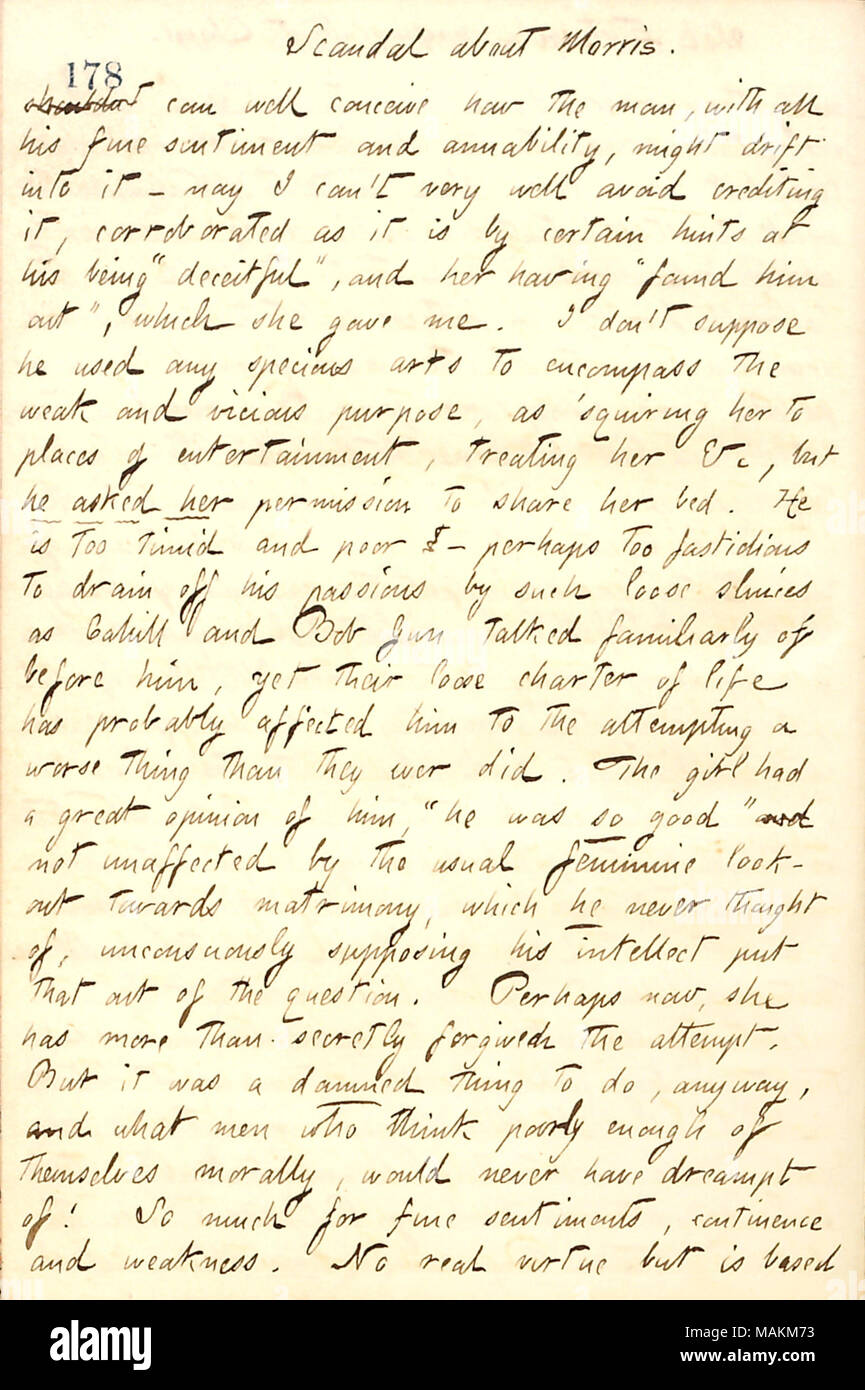 Scandal about Morris.
178
shouldn't can well conceive how the man, with all
his fine sentiment and amability, might drift
into it — nay I can't very well avoid crediting
it, corroborated as it is by certain hints at
his being "deceitful", and her having "found him
out", which she gave me. I don't suppose
he used any specious arts to encompass the
weak and vicious purpose, as 'squiring her to
places of entertainment, treating her &c, but
he asked her permission to share her bed. He
is too timid and poor — perhaps too fastidious
to drain off his passions by such loose sluices
as Cahill and Bob Gun talked familiarly of
before him, yet their loose charter of life
has probably affected him to the attempting a
worse thing than they ever did. The girl had
a great opinion of him, "he was so good" and
not unaffected by the usual feminine look-
out towards matrimony, which he never thought
of, unconsciously supposing his intellect put
that out of the question. Perhaps now, she
has more than secretly forgiven the attempt.
But it was a damned thing to do, anyway,
and what men who think poorly enough of
themselves morally, would never have dreampt
of! So much for fine sentiments, continence
and weakness. No real virtue but is based
alamy
Image ID: MAKM73
www.alamy.com